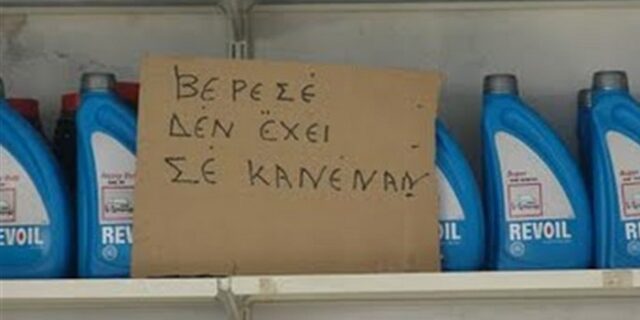 ΒΕΡΕΣΈ
ΔΈΝ ΈΧΕΙ
ΣΈ ΚΑΝΈΝΑΝ
REVOIL
REVOIL
REVOIL
REVOIL